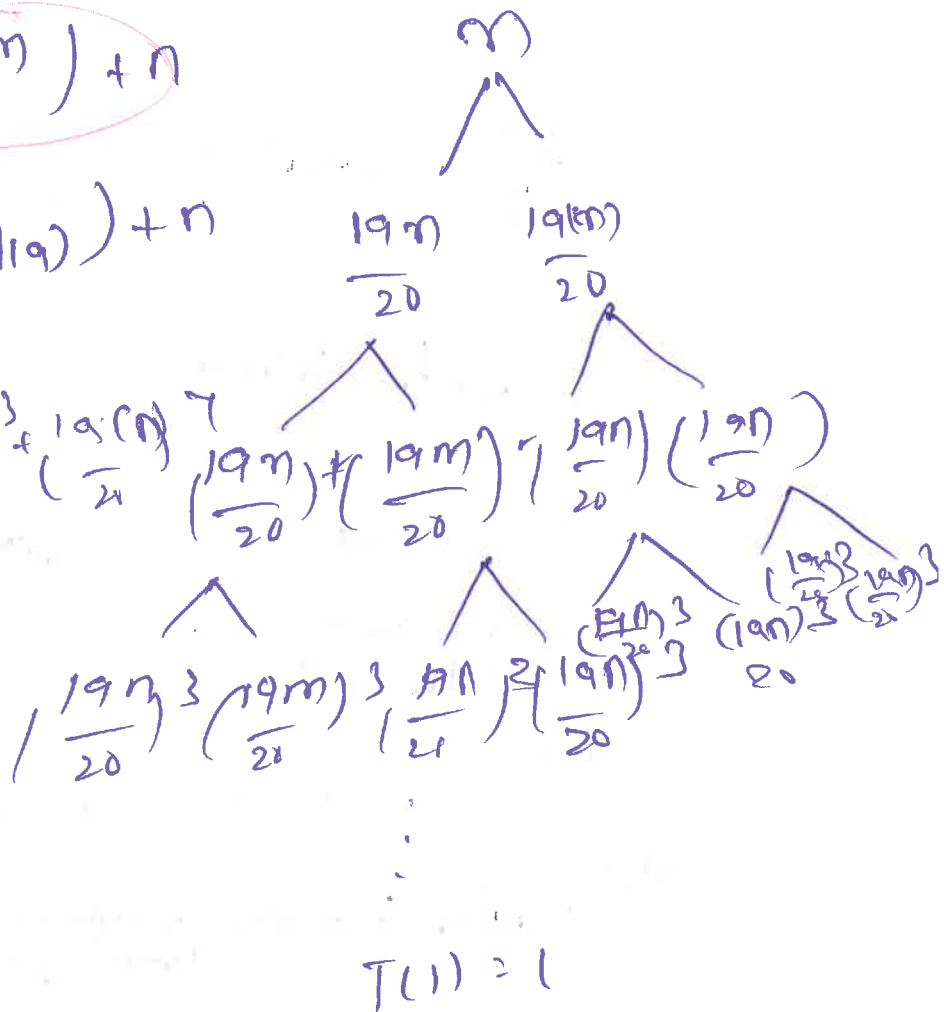 n
n ) + n
19) ) + n
19n/20 19(n)/20
3 + (19(n)/20 (19n/20) + (19n/20) (19n/20) (19n/20)
(19n/20)3 (19n/20)3
(19n/20)3 (19n/20)3 (19n/20)3 (19n)3/20
T(1) = 1